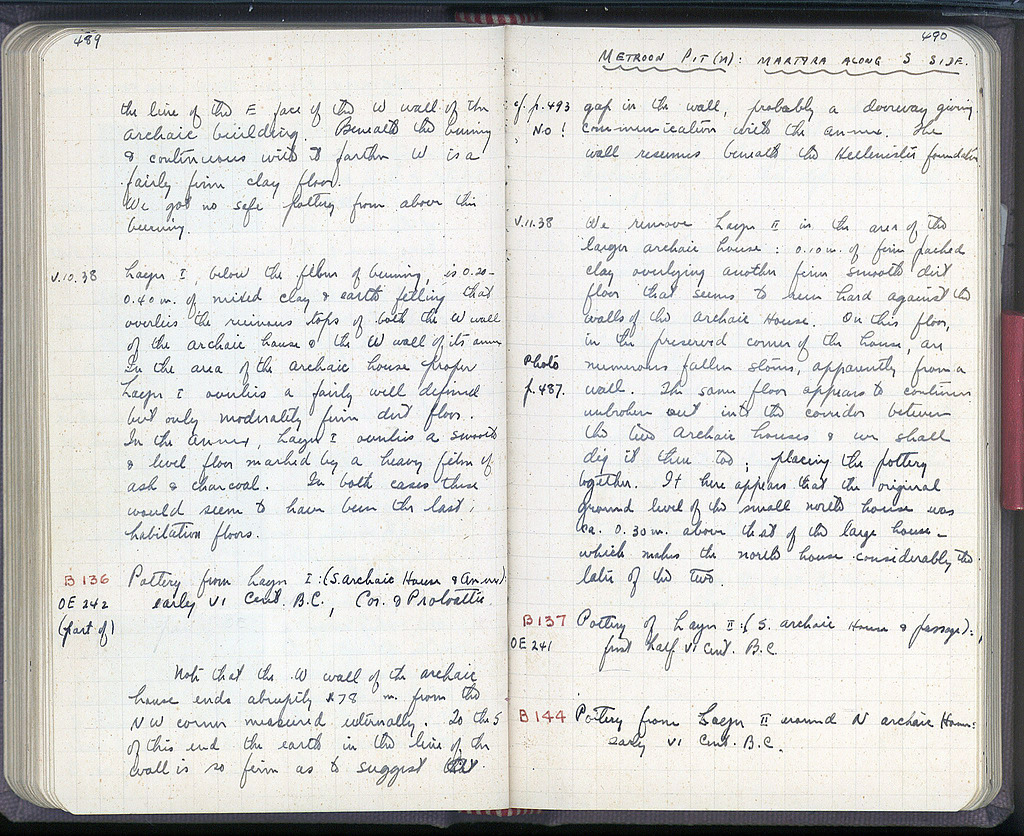 489
the line of the E face of the W wall of the
archaic building. Beneath the burning
& continuous with it farther W is a
fairly firm clay floor.
We got no safe pottery from above this
burning.
V.10.38 Layer I, below the film of burning, is 0.20-
0.40 m. of mixed clay & earth filling that
overlies the ruinous tops of both the W wall
of the archaic house & the W wall of its annex
In the area of the archaic house proper
Layer I overlies a fairly well defined
but only moderately firm dirt floor.
In the annex, Layer I overlies a smooth
& level floor marked by a heavy film of
ash & charcoal. In both cases these
would seem to have been the last
habitation floors.
B 136 Pottery from Layer I: (S. archaic House & Annex):
OE 242 early VI Cent. B.C., Cor. & Protoattic
(part of)
Note that the W wall of the archaic
house ends abruptly 78 m. from the
NW corner measured internally. To the S
of this end the earth in the line of the
wall is so firm as to suggest
490
METROON PIT (N): MARTYRA ALONG S SIDE.
cf. p. 493 gap in the wall, probably a doorway giving
No! communication with the annex. The
wall resumes beneath the Hellenistic foundation
V.11.38 We remove Layer II in the area of the
larger archaic house: 0.10 m. of firm packed
clay overlying another firm smooth dirt
floor that seems to run hard against the
walls of the Archaic House. On this floor,
in the preserved corner of the house, are
Photo numerous fallen stones, apparently from a
p. 487. wall. The same floor appears to continue
unbroken out into the corridor between
the two Archaic houses & we shall
dig it there too; placing the pottery
together. It here appears that the original
ground level of the small north house was
ca. 0.30 m. above that of the large house -
which makes the north house considerably the
later of the two.
B 137 Pottery of Layer II: (S. archaic House & passage):
OE 241 first half VI Cent. B.C.
B 144 Pottery from Layer II around N archaic House:
early VI Cent. B.C.